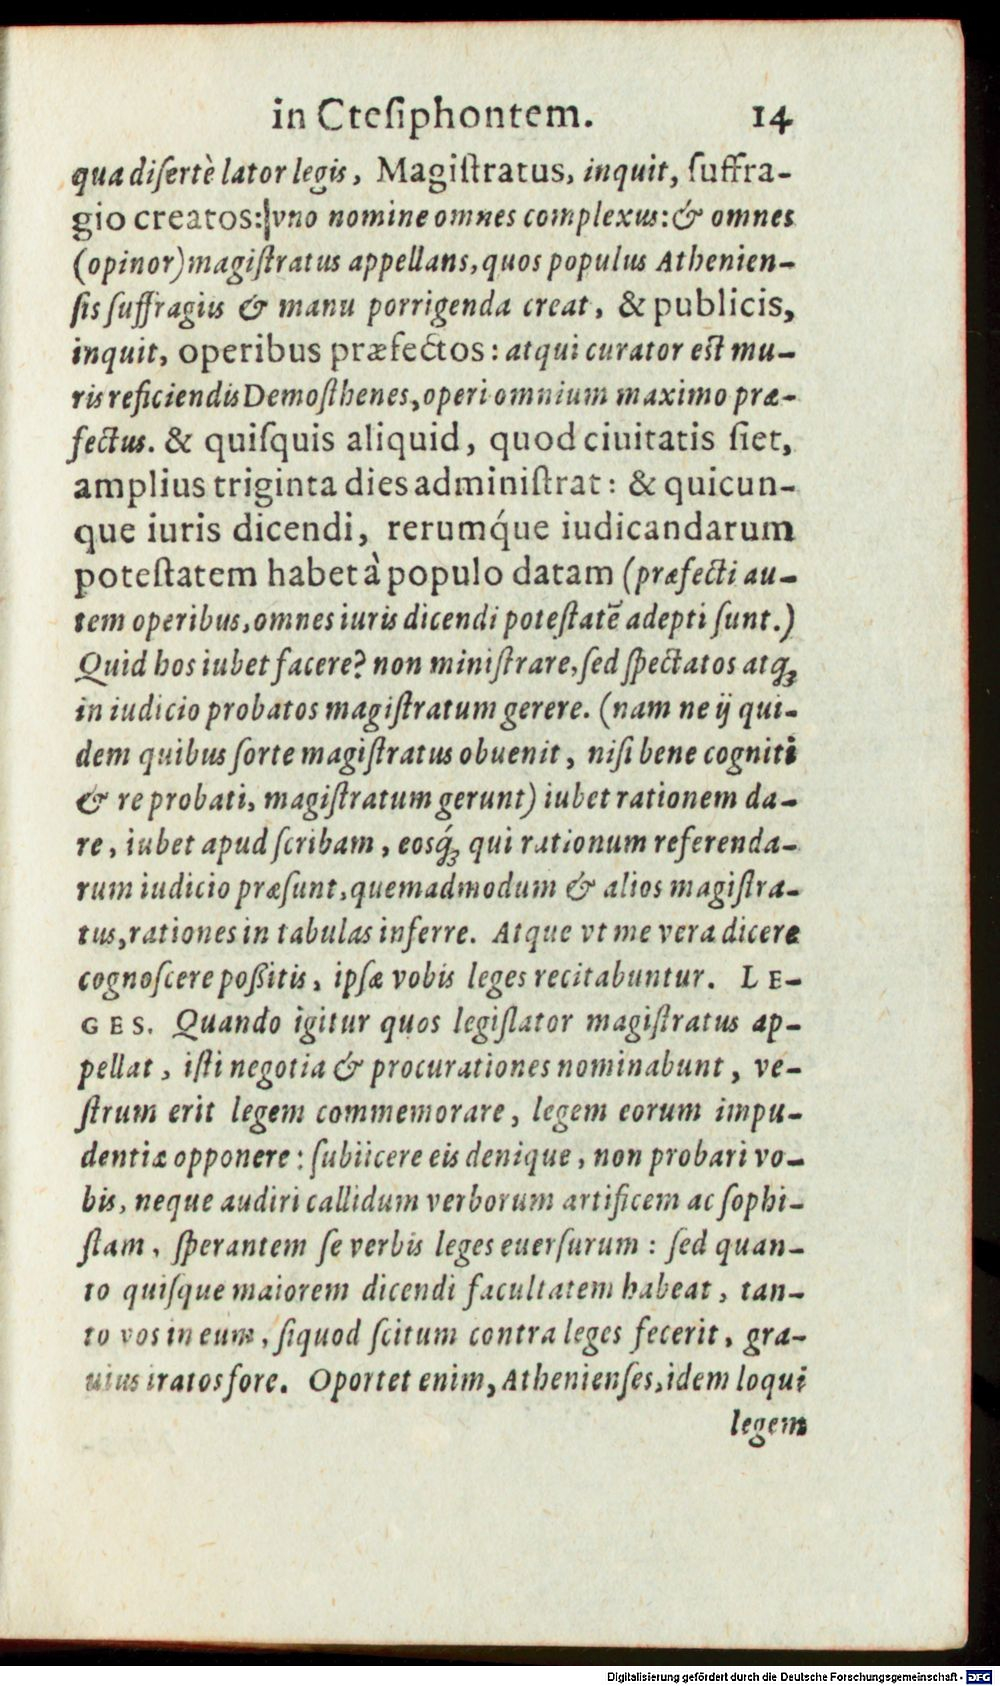 in Cteſiphontem. 14
qua diſertè lator legis, Magiſtratus, inquit, ſuffra-
gio creatos: vno nomine omnes complexus: & omnes
(opinor) magiſtratus appellans, quos populus Athenien-
ſis ſuffragiis & manu porrigenda creat, & publicis,
inquit, operibus præfectos: atqui curator est mu-
ris reficiendis Demoſthenes, operi omnium maximo præ-
fectus. & quiſquis aliquid, quod ciuitatis ſiet,
amplius triginta dies adminiſtrat: & quicun-
que iuris dicendi, rerumq́ue iudicandarum
poteſtatem habet à populo datam (præfecti au-
tem operibus, omnes iuris dicendi poteſtatē adepti ſunt.)
Quid hos iubet facere? non miniſtrare, ſed ſpectatos atq;
in iudicio probatos magiſtratum gerere. (nam ne ij qui-
dem quibus ſorte magiſtratus obuenit, niſi bene cogniti
& re probati, magiſtratum gerunt) iubet rationem da-
re, iubet apud ſcribam, eosq́; qui rationum referenda-
rum iudicio præſunt, quemadmodum & alios magiſtra-
tus, rationes in tabulas inferre. Atque vt me vera dicere
cognoſcere poßitis, ipſæ vobis leges recitabuntur. LE-
GES. Quando igitur quos legiſlator magiſtratus ap-
pellat, iſti negotia & procurationes nominabunt, ve-
ſtrum erit legem commemorare, legem eorum impu-
dentiæ opponere: ſubiicere eis denique, non probari vo-
bis, neque audiri callidum verborum artificem ac ſophi-
ſtam, ſperantem ſe verbis leges euerſurum: ſed quan-
to quiſque maiorem dicendi facultatem habeat, tan-
to vos in eum, ſiquod ſcitum contra leges fecerit, gra-
uius iratos fore. Oportet enim, Athenienſes, idem loqui
legem
Digitalisierung gefördert durch die Deutsche Forschungsgemeinschaft - DFG